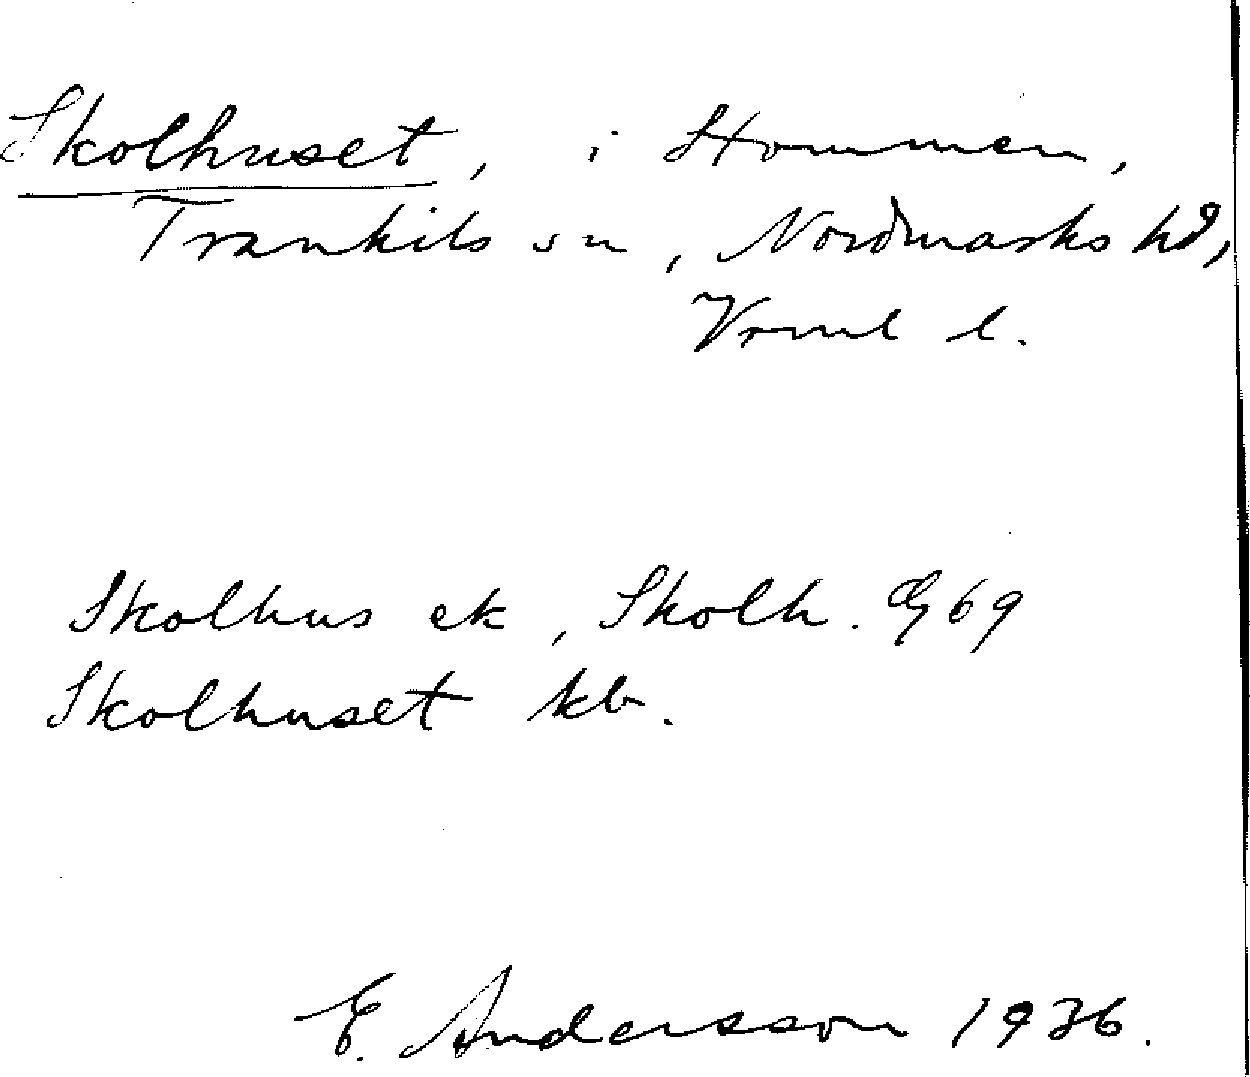 Skolhuset, i Strommen,
Trankils sn, Nordmarks hd,
Vrml l.
Skolhus ek, Skolh. G 69
Skolhuset kb.
E. Andersson 1936.